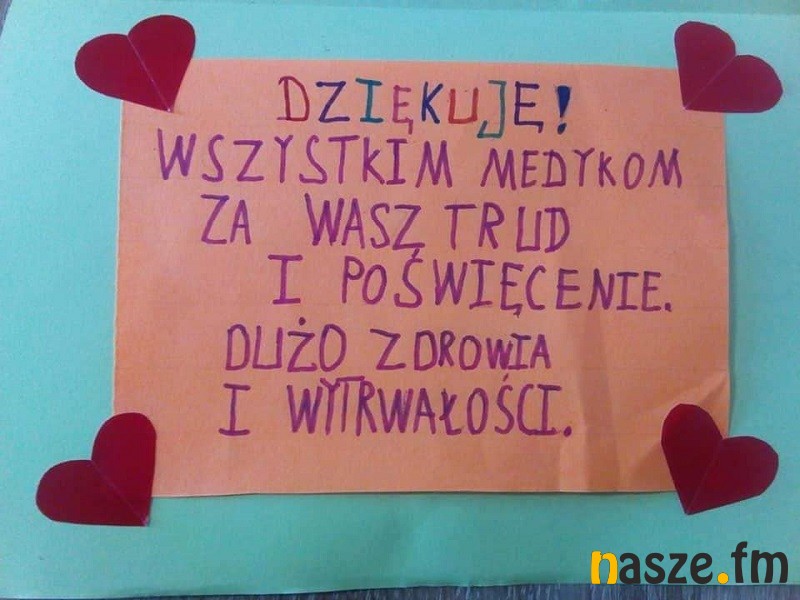 DZIĘKUJĘ!
WSZYSTKIM MEDYKOM
ZA WASZ TRUD
I POŚWIĘCENIE.
DUŻO ZDROWIA
I WYTRWAŁOŚCI.
nasze.fm